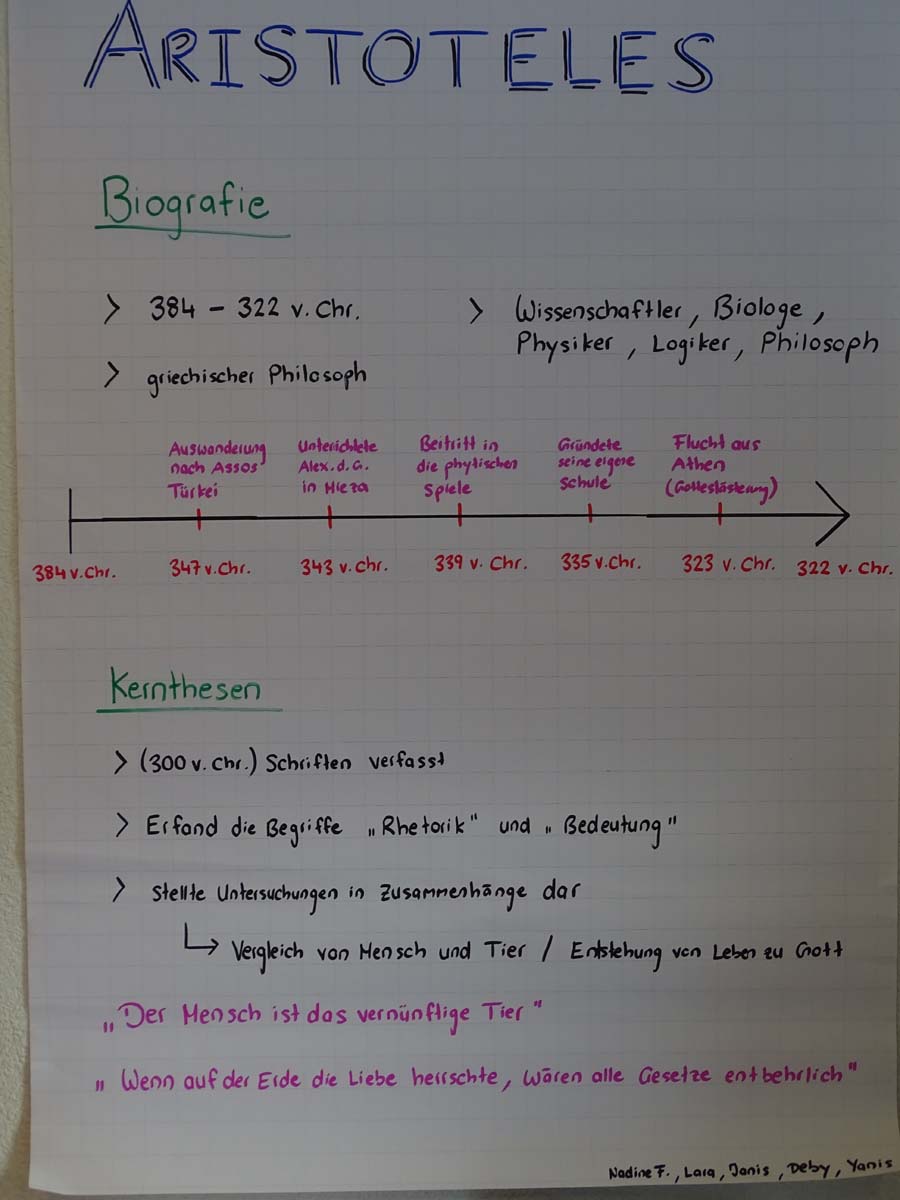 ARISTOTELES
Biografie
> 384 – 322 v. Chr.
> griechischer Philosoph
> Wissenschaftler, Biologe,
Physiker, Logiker, Philosoph
Auswanderung
nach Assos
Türkei
Unterichtete
Alex. d. G.
in Mieza
Beitritt in
die phytischen
Spiele
Gründete
seine eigene
Schule
Flucht aus
Athen
(Gotteslästerung)
384 v. Chr.
347 v. Chr.
343 v. Chr.
339 v. Chr.
335 v. Chr.
323 v. Chr.
322 v. Chr.
Kernthesen
> (300 v. Chr.) Schriften verfasst
> Erfand die Begriffe „Rhetorik" und „Bedeutung"
> Stellte Untersuchungen in Zusammenhänge dar
↳ Vergleich von Mensch und Tier / Entstehung von Leben zu Gott
„Der Mensch ist das vernünftige Tier"
„Wenn auf der Erde die Liebe herrschte, wären alle Gesetze entbehrlich"
Nadine F., Lara, Janis, Deby, Yanis